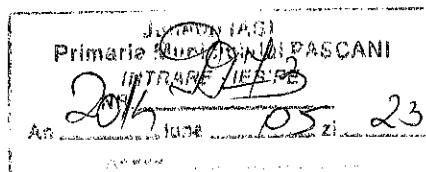 Județul IAȘI
Primăria Municipiului PAȘCANI
INTRARE / IEȘIRE
An 2014 luna 05 zi 23